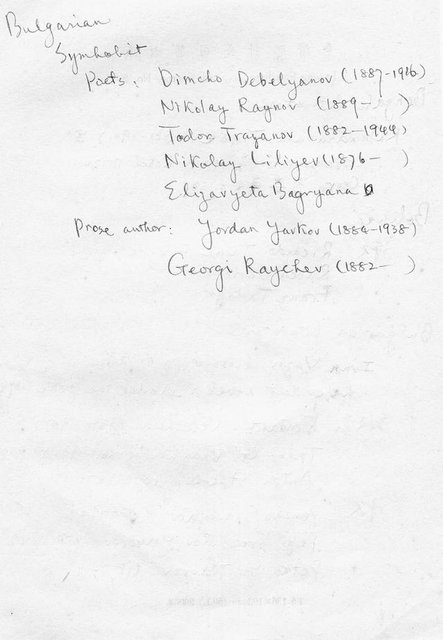 Bulgarian
Symbolist
Poets: Dimcho Debelyanov (1887-1916)
Nikolay Raynov (1889- )
Todor Trayanov (1882-1944)
Nikolay Liliyev (1876- )
Elizavyeta Bagryana
Prose author: Yordan Yovkov (1884-1938)
Georgi Raychev (1882- )